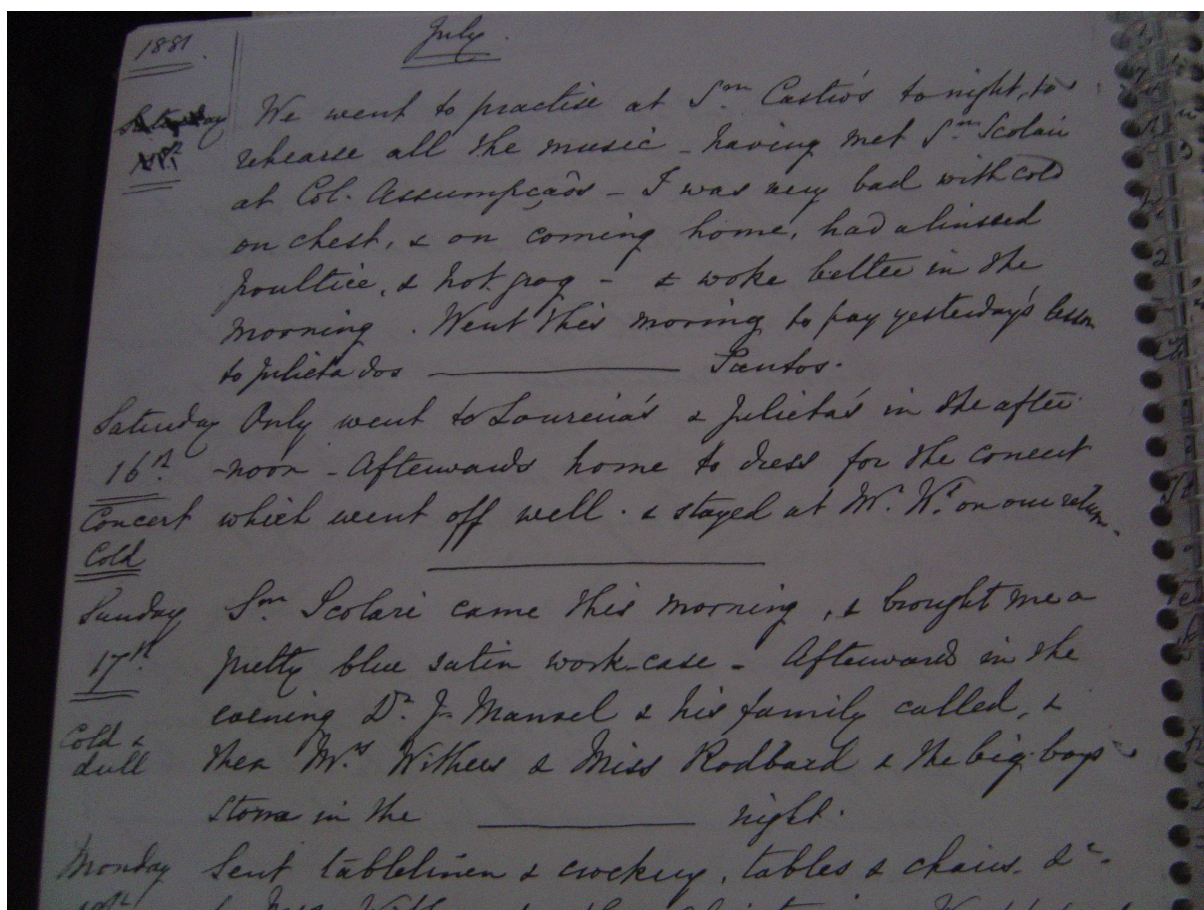 1881. July.
We went to practise at Snr. Castro's to night, to
rehearse all the music - having met Snr Scolari
at Col. Assumpcaõs - I was very bad with cold
on chest, & on coming home, had a linseed
poultice, & hot grog - & woke better in the
morning. Went this morning to pay yesterday's lesson
to Julieta dos Santos.
Saturday Only went to Loureiia's & Julieta's in the after
16th. -noon - Afterwards home to dress for the concert
Concert which went off well. & stayed at Mr. Ws. on our return.
Cold
Sunday Snr. Scolari came this morning, & brought me a
17th. pretty blue satin work-case - Afterwards in the
evening Dr. J. Mansel & his family called, &
Cold & then Mrs Withers & Miss Rodbard & the big boys
dull
Storm in the night.
Monday Sent tablelinen & crockery, tables & chairs. &c-